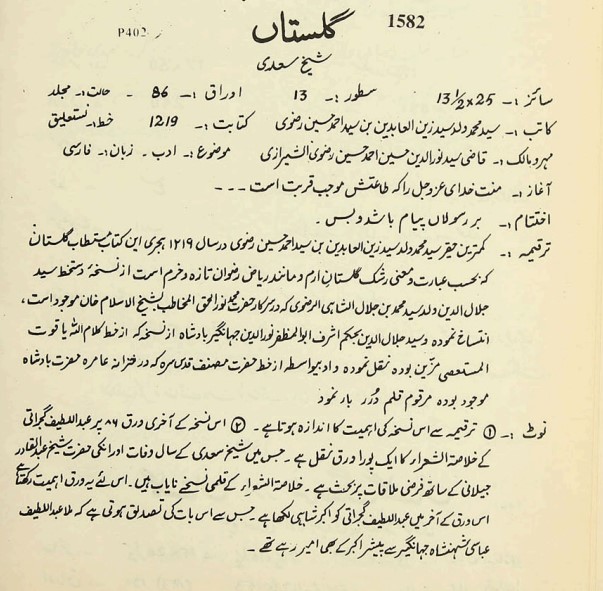 1582
گلستاں
P402
شیخ سعدی
سائز :۔ 25×13½ سطور :۔ 13 اوراق :۔ 86 ۔ حالت :۔ مجلد
کاتب :۔ سید محمد ولد سید زین العابدین بن سید احمد حسین رضوی کتابت :۔ 1219 خط :۔ نستعلیق
مہر و مالک :۔ قاضی سید نور الدین حسین احمد حسین رضوی الشیرازی موضوع :۔ ادب ۔ زبان :۔ فارسی
آغاز :۔ منت خدای عزوجل را کہ طاعتش موجب قربت است ۔ ۔ ۔
اختتام :۔ بر رسولاں پیام باشد و بس ۔
ترقیمہ :۔ کمترین حقیر سید محمد ولد سید زین العابدین بن سید احمد حسین رضوی در سال ۱۲۱۹ ہجری این کتاب مستطاب گلستان
کہ بحسب عبارت و معنی رشک گلستان ارم و مانند ریاض رضوان تازہ و خرم است از نسخۂ دستخط سید
جلال الدین ولد سید محمد بن جلال الشاہی الرضوی کہ در سرکار حضرت محمد نور الحق المخاطب بشیخ الاسلام خان موجود است ،
انتساخ نمودہ و سید جلال الدین بحکم اشرف ابو المظفر نور الدین جہانگیر بادشاہ از نسخہ کہ از خط کلام اللہ یاقوت
المستعصمی مزین بودہ نقل نمودہ و او بیواسطہ از خط حضرت مصنف قدس سرہ کہ در خزانہ عامرہ حضرت بادشاہ
موجود بودہ مرقوم قلم دُرَر بار نمود
نوٹ :۔ ① ترقیمہ سے اس نسخہ کی اہمیت کا اندازہ ہوتا ہے ۔ ② اس نسخہ کے آخری ورق ۸۶ پر عبد اللطیف گجراتی
کے خلاصۃ الشعراء کا ایک پورا ورق نقل ہے ۔ جس میں شیخ سعدی کے سال وفات اور انکی حضرت شیخ عبد القادر
جیلانی کے ساتھ فرضی ملاقات پر بحث ہے ۔ خلاصۃ الشعراء کے قلمی نسخے نایاب ہیں ۔ اس لئے یہ ورق اہمیت رکھتا ہے
اس ورق کے آخر میں عبد اللطیف گجراتی کو اکبر شاہی لکھا ہے ۔ جس سے اس بات کی تصدیق ہوتی ہے کہ ملا عبد اللطیف
عباسی شہنشاہ جہانگیر سے پیشتر اکبر کے بھی امیر رہے تھے ۔